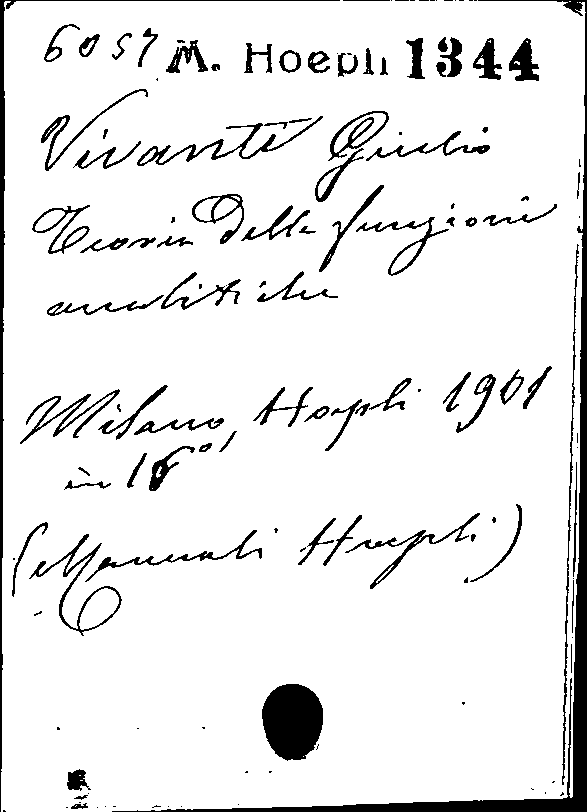 6057 M. Hoepli 1344
Vivanti Giulio
Teoria delle funzioni
analitiche
Milano, Hoepli 1901
in 16°,
(Manuali Hoepli)